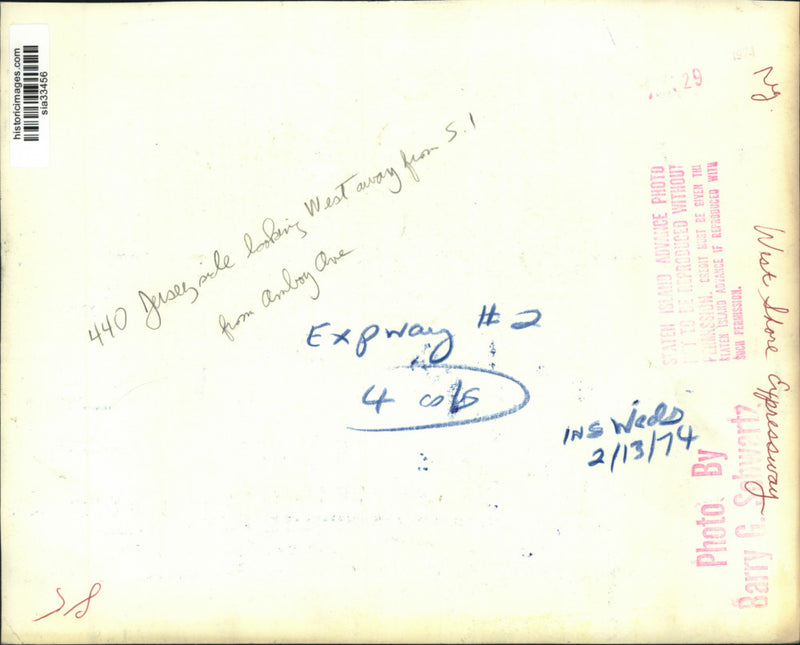 historicimages.com
sia33456
440 Jersey side looking West away from S.I
from Amboy Ave
Expway # 2
4 cols
INS Weds
2/13/74
29
1974
STATEN ISLAND ADVANCE PHOTO
NOT TO BE REPRODUCED WITHOUT
PERMISSION. CREDIT MUST BE GIVEN THE
STATEN ISLAND ADVANCE IF REPRODUCED WITH
SUCH PERMISSION.
West Shore Expressway
Photo By
Barry G. Schwartz